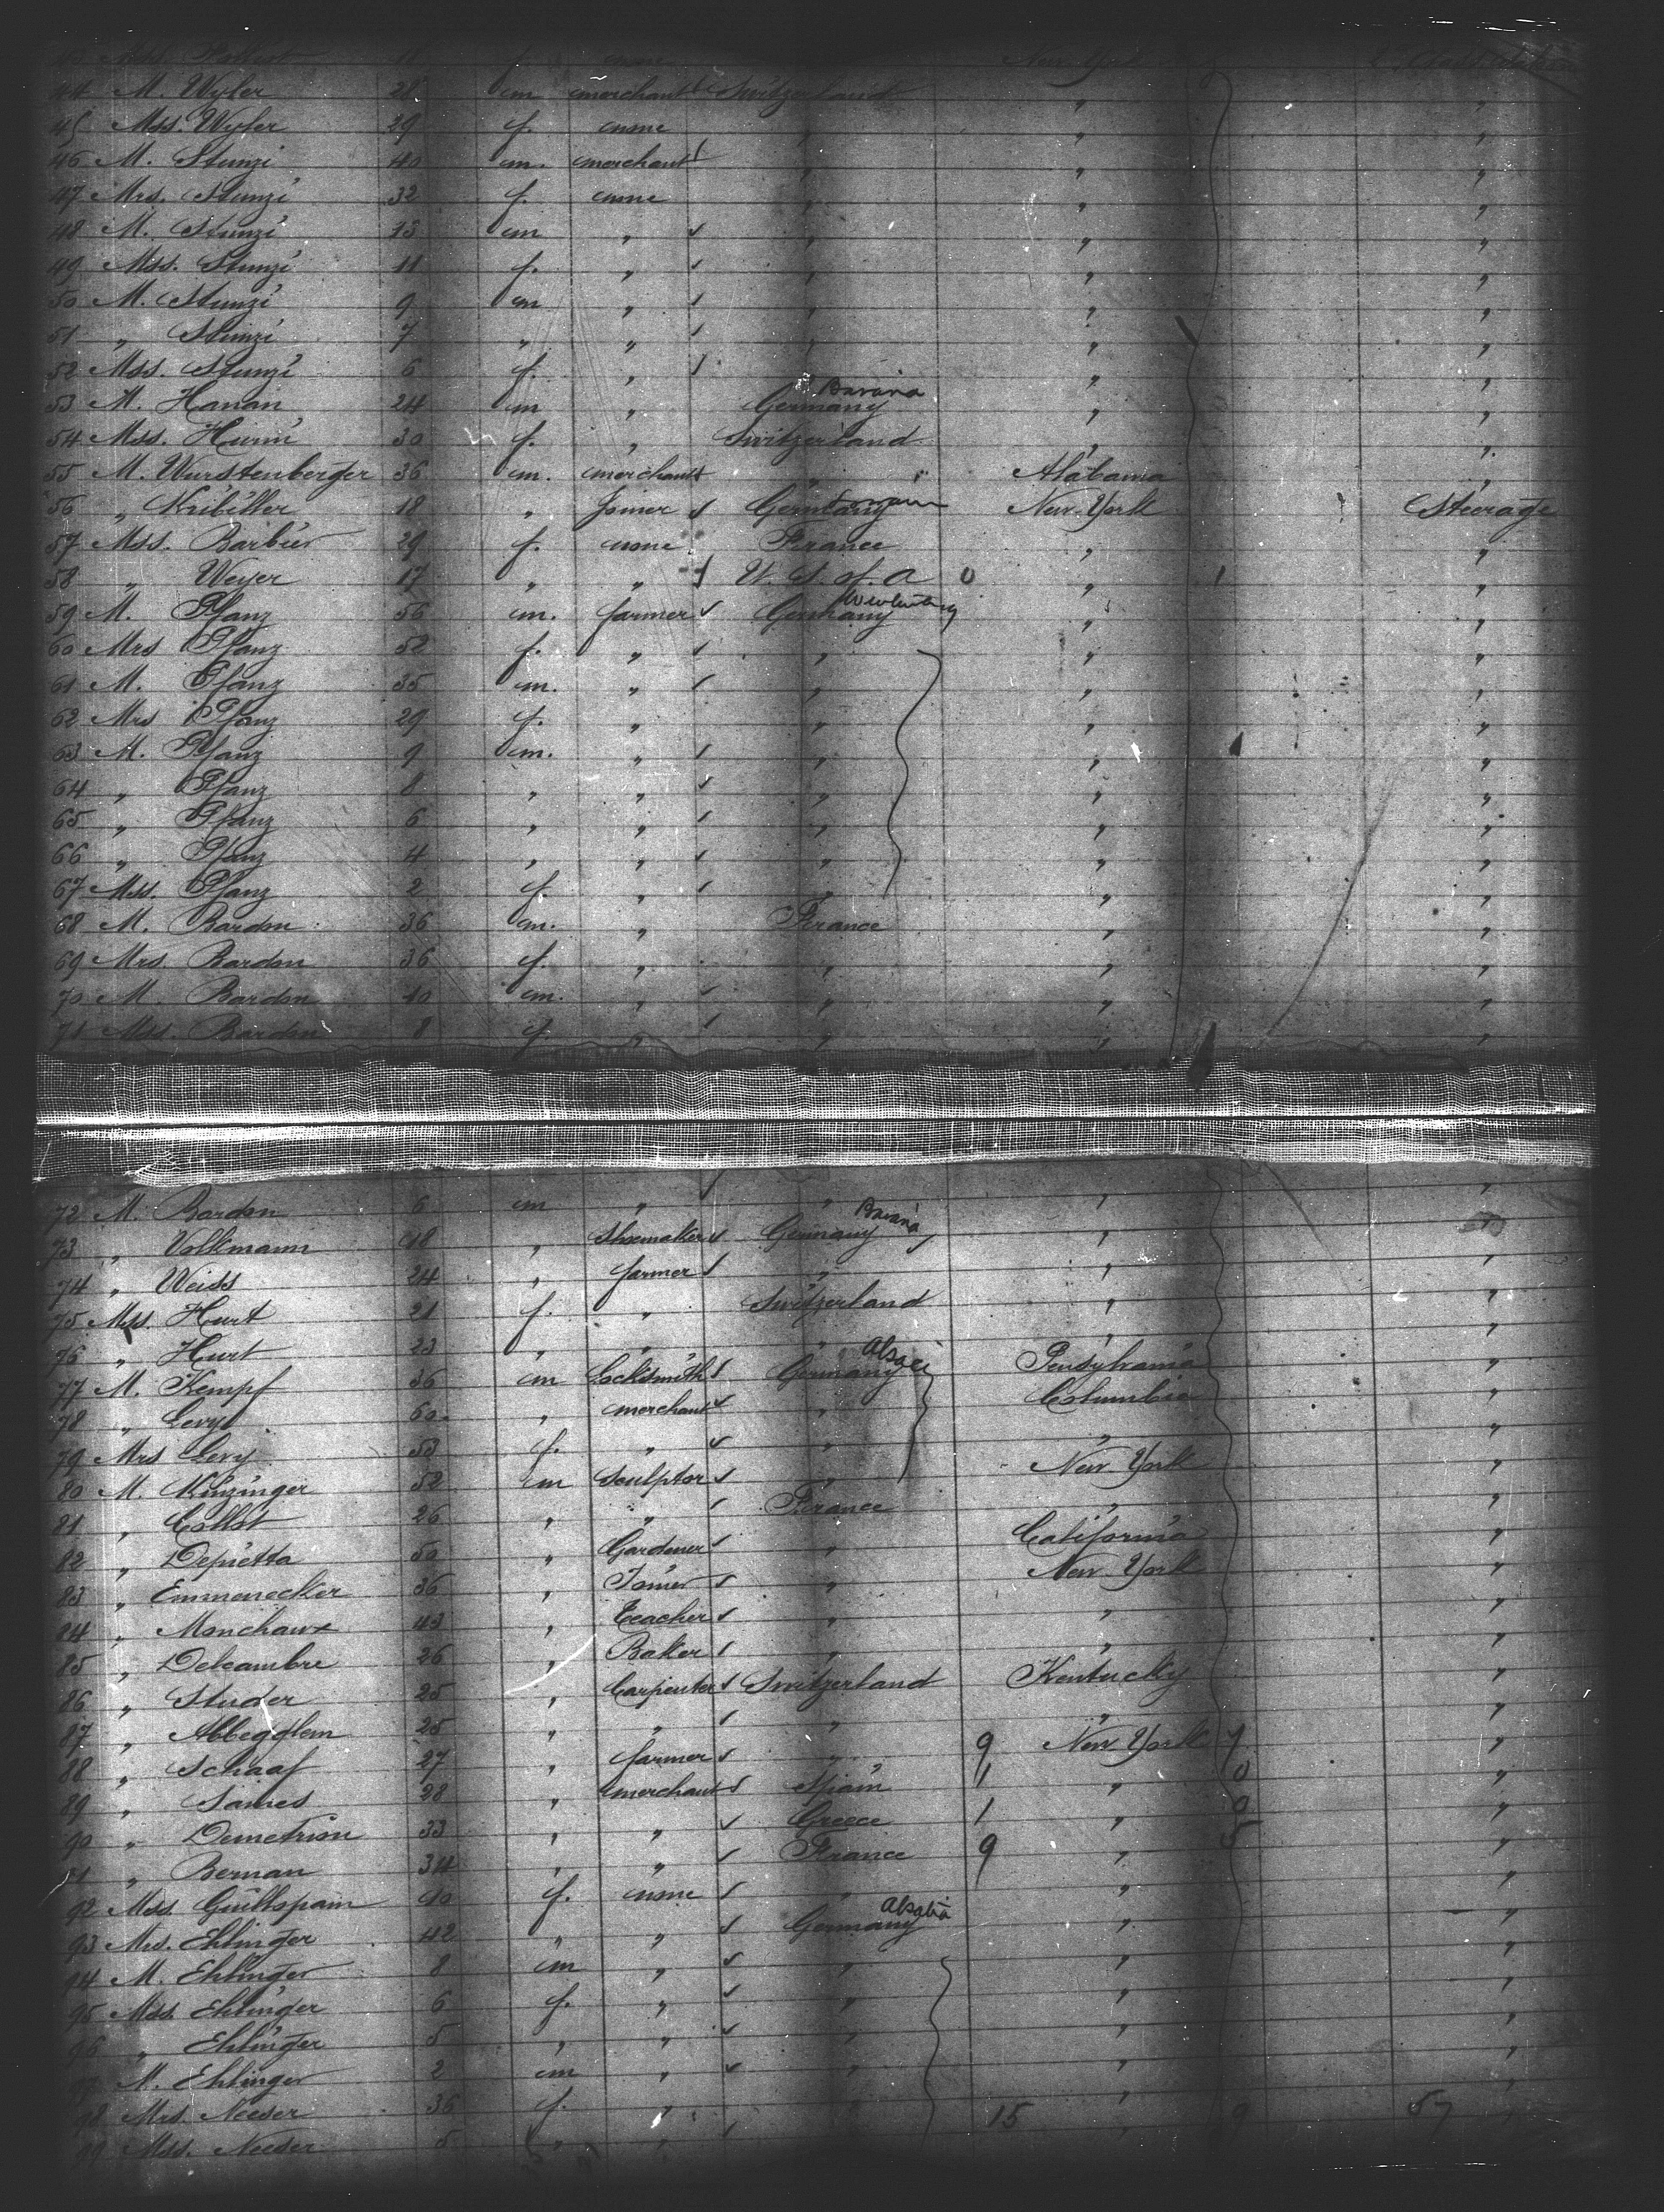 New York
44 M. Wyler 28 m merchant Switzerland "  "
45 Mss. Wyler 29 f. none " " "
46 M. Stunzi 40 m. merchant " " "
47 Mrs. Stunzi 32 f. none " " "
48 M. Stunzi 13 m " " " "
49 Mss. Stunzi 11 f. " " " "
50 M. Stunzi 9 m " " " "
51 " Stunzi 7 " " " " "
52 Mss. Stunzi 6 f. " " " "
53 M. Hanan 24 m " Germany Bavaria " "
54 Mss. 30 f. " Switzerland " "
55 M. Wurstenberger 36 m. merchant " Alabama "
56 " Kribiller 18 " Joiner Germany New York Steerage
57 Mss. Barbier 29 f. none France " "
58 " Weyer 17 " " U. S. of. a 0 " 1
59 M. Pfanz 56 m. farmer Germany " "
60 Mrs Pfanz 52 f. " " " "
61 M. Pfanz 35 m. " " " "
62 Mrs Pfanz 29 f. " " " "
63 M. Pfanz 9 m. " " " "
64 " Pfanz 8 " " " " "
65 " Pfanz 6 " " " " "
66 " Pfanz 4 " " " " "
67 Mss. Pfanz 2 f. " " " "
68 M. Bardon 36 m. " France " "
69 Mrs. Bardon 36 f. " " " "
70 M. Bardon 10 m. " " " "
71 Mss. Bardon 8 f. " " " "
72 M. Bardon 6 m " " " "
73 " Volkmann 18 " Shoemaker Germany Bavaria "
74 " Weiss 24 " farmer " " "
75 Mss. Hurt 21 f. " Switzerland " "
76 " Hurt 23 " " " " "
77 M. Kempf 36 m Locksmith Germany Alsace Pensylvania "
78 " Levy 60 " merchant " Columbia "
79 Mrs Levy 53 f. " " " "
80 M. Kinzinger 52 m Sculptor " New York "
81 " Collot 26 " " France " "
82 " Depietta 50 " Gardener " California "
83 " Emmenecker 36 " Joiner " New York "
84 " Monchaux 43 " Teacher " " "
85 " Delcambre 26 " Baker " " "
86 " Studer 25 " Carpenter Switzerland Kentucky "
87 " Abbegglem 25 " " " " "
88 " Schaaf 27 " farmer " 9 New York 7 "
89 " Saines 28 " merchant Spain 1 " 0 "
90 " Demetrion 33 " " Greece 1 " 0 "
91 " Bernan 34 " " France 9 " 5 "
92 Mss. Guilhspain f. none " " "
93 Mrs. Ehlinger 42 " " Germany Alsatia " "
94 M. Ehlinger 8 m " " " "
95 Mss. Ehlinger 6 f. " " " "
96 " Ehlinger 5 " " " " "
M. Ehlinger 2 m " " " "
98 Mrs. Neeser 36 f. " " 15 " 9 57 "
99 Mss. Neeser 5 " " "